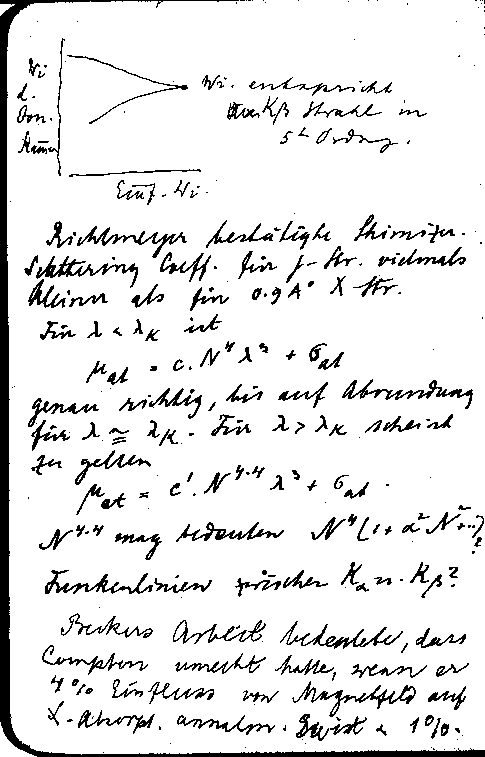 Wi
d.
Ion.
Kammer
Wi. entspricht
Kβ Strahl in
5t Ordng.
Einf. Wi.
Richtmeyer bestätigte
Scattering Coeff. für γ-Str. vielmals
kleiner als für 0.9 A° X Str.
Für λ < λK ist
μat = c. N⁴ λ³ + σat
genau richtig, bis auf Abrundung
für λ ≅ λK. Für λ > λK scheint
zu gelten
μat = c'. N⁴·⁴ λ³ + σat.
N⁴·⁴ mag bedeuten N⁴ (1 + α² N² + ..)?
Funkenlinien zwischen Kα u. Kβ?
Beckers Arbeit bedeutete, dass
Compton unrecht hatte, wenn er
4% Einfluss von Magnetfeld auf
Absorpt. annahm. ist < 1%.